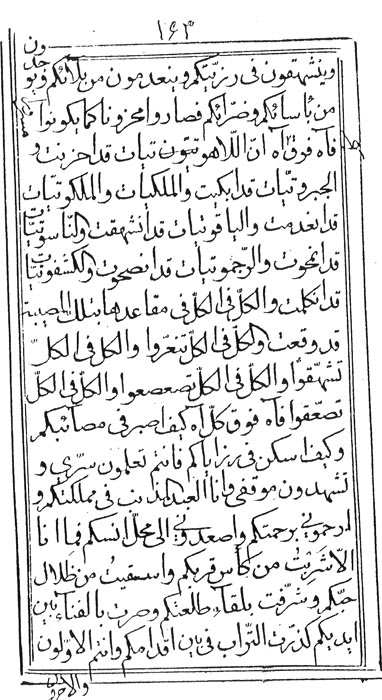 ١٦٣
ويشتهقون فى رزيّتكم وينعدمون من بلائكم ويوجدون
من بأسائكم وضرّائكم فصاروا محزونا كما يكونوا
فآه فوق آه انّ اللّاهوتيّات قد احزنت و
الجبروتيّات قد ابكيت والملكيات والملكوتيّات
قد انعدمت والياقوتيات قد انشهقت والنّاسوتيّات
قد انمحوت والرّحموتيات قد انصحوت والكشفوتيّات
قد انكلّت والكلّ فى الكلّ فى مقاعدها بتلك المصيبة
قد وقعت والكلّ فى الكلّ والكلّ فى الكلّ
تشهّقوا والكلّ فى الكلّ تصعصعوا والكلّ فى الكلّ
تصعّقوا فآه فوق كلّ آه كيف اصبر فى مصائبكم
وكيف اسكن فى رزاياكم فانتم تعلمون سرّي و
تشهدون موقفى وانا العبد المذنب فى مملكتكم و
ارحموني برحمتكم واصعدوني الى محلّ انسكم فها انا
الّا شربت من كأس قربكم واستقيت من ظلال
حبّكم وشرّفت بلقاء طلعتكم وصرت بالفناء بين
ايديكم كذرّت التّراب فى بين اقدامكم وانتم الاوّلون
والآخرون